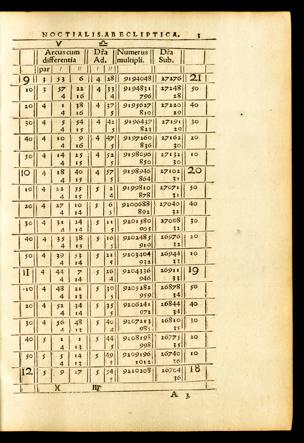 NOCTIALIS AB ECLIPTICA. 3
V ♎
Arcus cum differentia Dr̃a Ad. Numerus multipli. Dr̃a Sub.
par ı ıı ı ıı
9 3 53 6 4 28 9194048 27276 21
10 3 57 22 4 33 9194831 27248 50
4 16 4 796 28
20 4 1 38 4 37 9195627 27220 40
4 16 5 810 29
30 4 5 54 4 42 9196437 27191 30
4 15 5 823 29
40 4 10 9 4 47 9197260 27162 20
4 16 5 836 30
50 4 14 25 4 52 9198096 27132 10
4 15 5 850 30
10 4 18 40 4 57 9198946 27102 20
4 15 5 864 31
10 4 22 55 5 2 9199810 27071 50
4 15 4 878 31
20 4 27 10 5 6 9200688 27040 40
4 14 5 892 32
30 4 31 24 5 11 9201580 27008 30
4 14 5 905 32
40 4 35 38 5 9202485 26976 20
4 15 919 32
50 4 39 53 5 21 9203404 26944 10
4 14 5 932 33
11 4 44 7 5 26 9204336 26911 19
4 14 946 33
10 4 48 21 5 30 9205282 26878 50
4 13 5 959 34
20 4 52 34 5 35 9206241 26844 40
4 14 5 34
30 4 56 48 5 40 9207213 26810 30
4 13 4 985 35
40 5 1 1 5 44 9208198 26775 20
4 13 5 998 35
50 5 5 14 5 49 9209196 26740 10
4 13 5 1012 36
12 5 9 27 5 54 9210208 26704 18
5 36
)( ♍
A 3